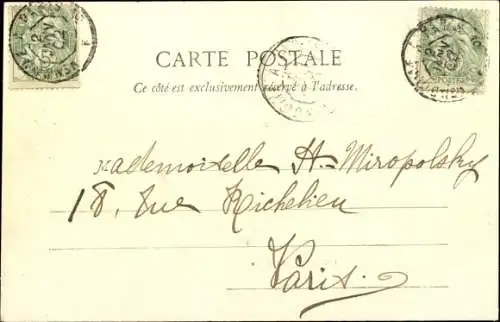 CARTE POSTALE
Ce côté est exclusivement réservé à l'adresse.
Mademoiselle H. Miropolsky
18, Rue Richelieu
Paris